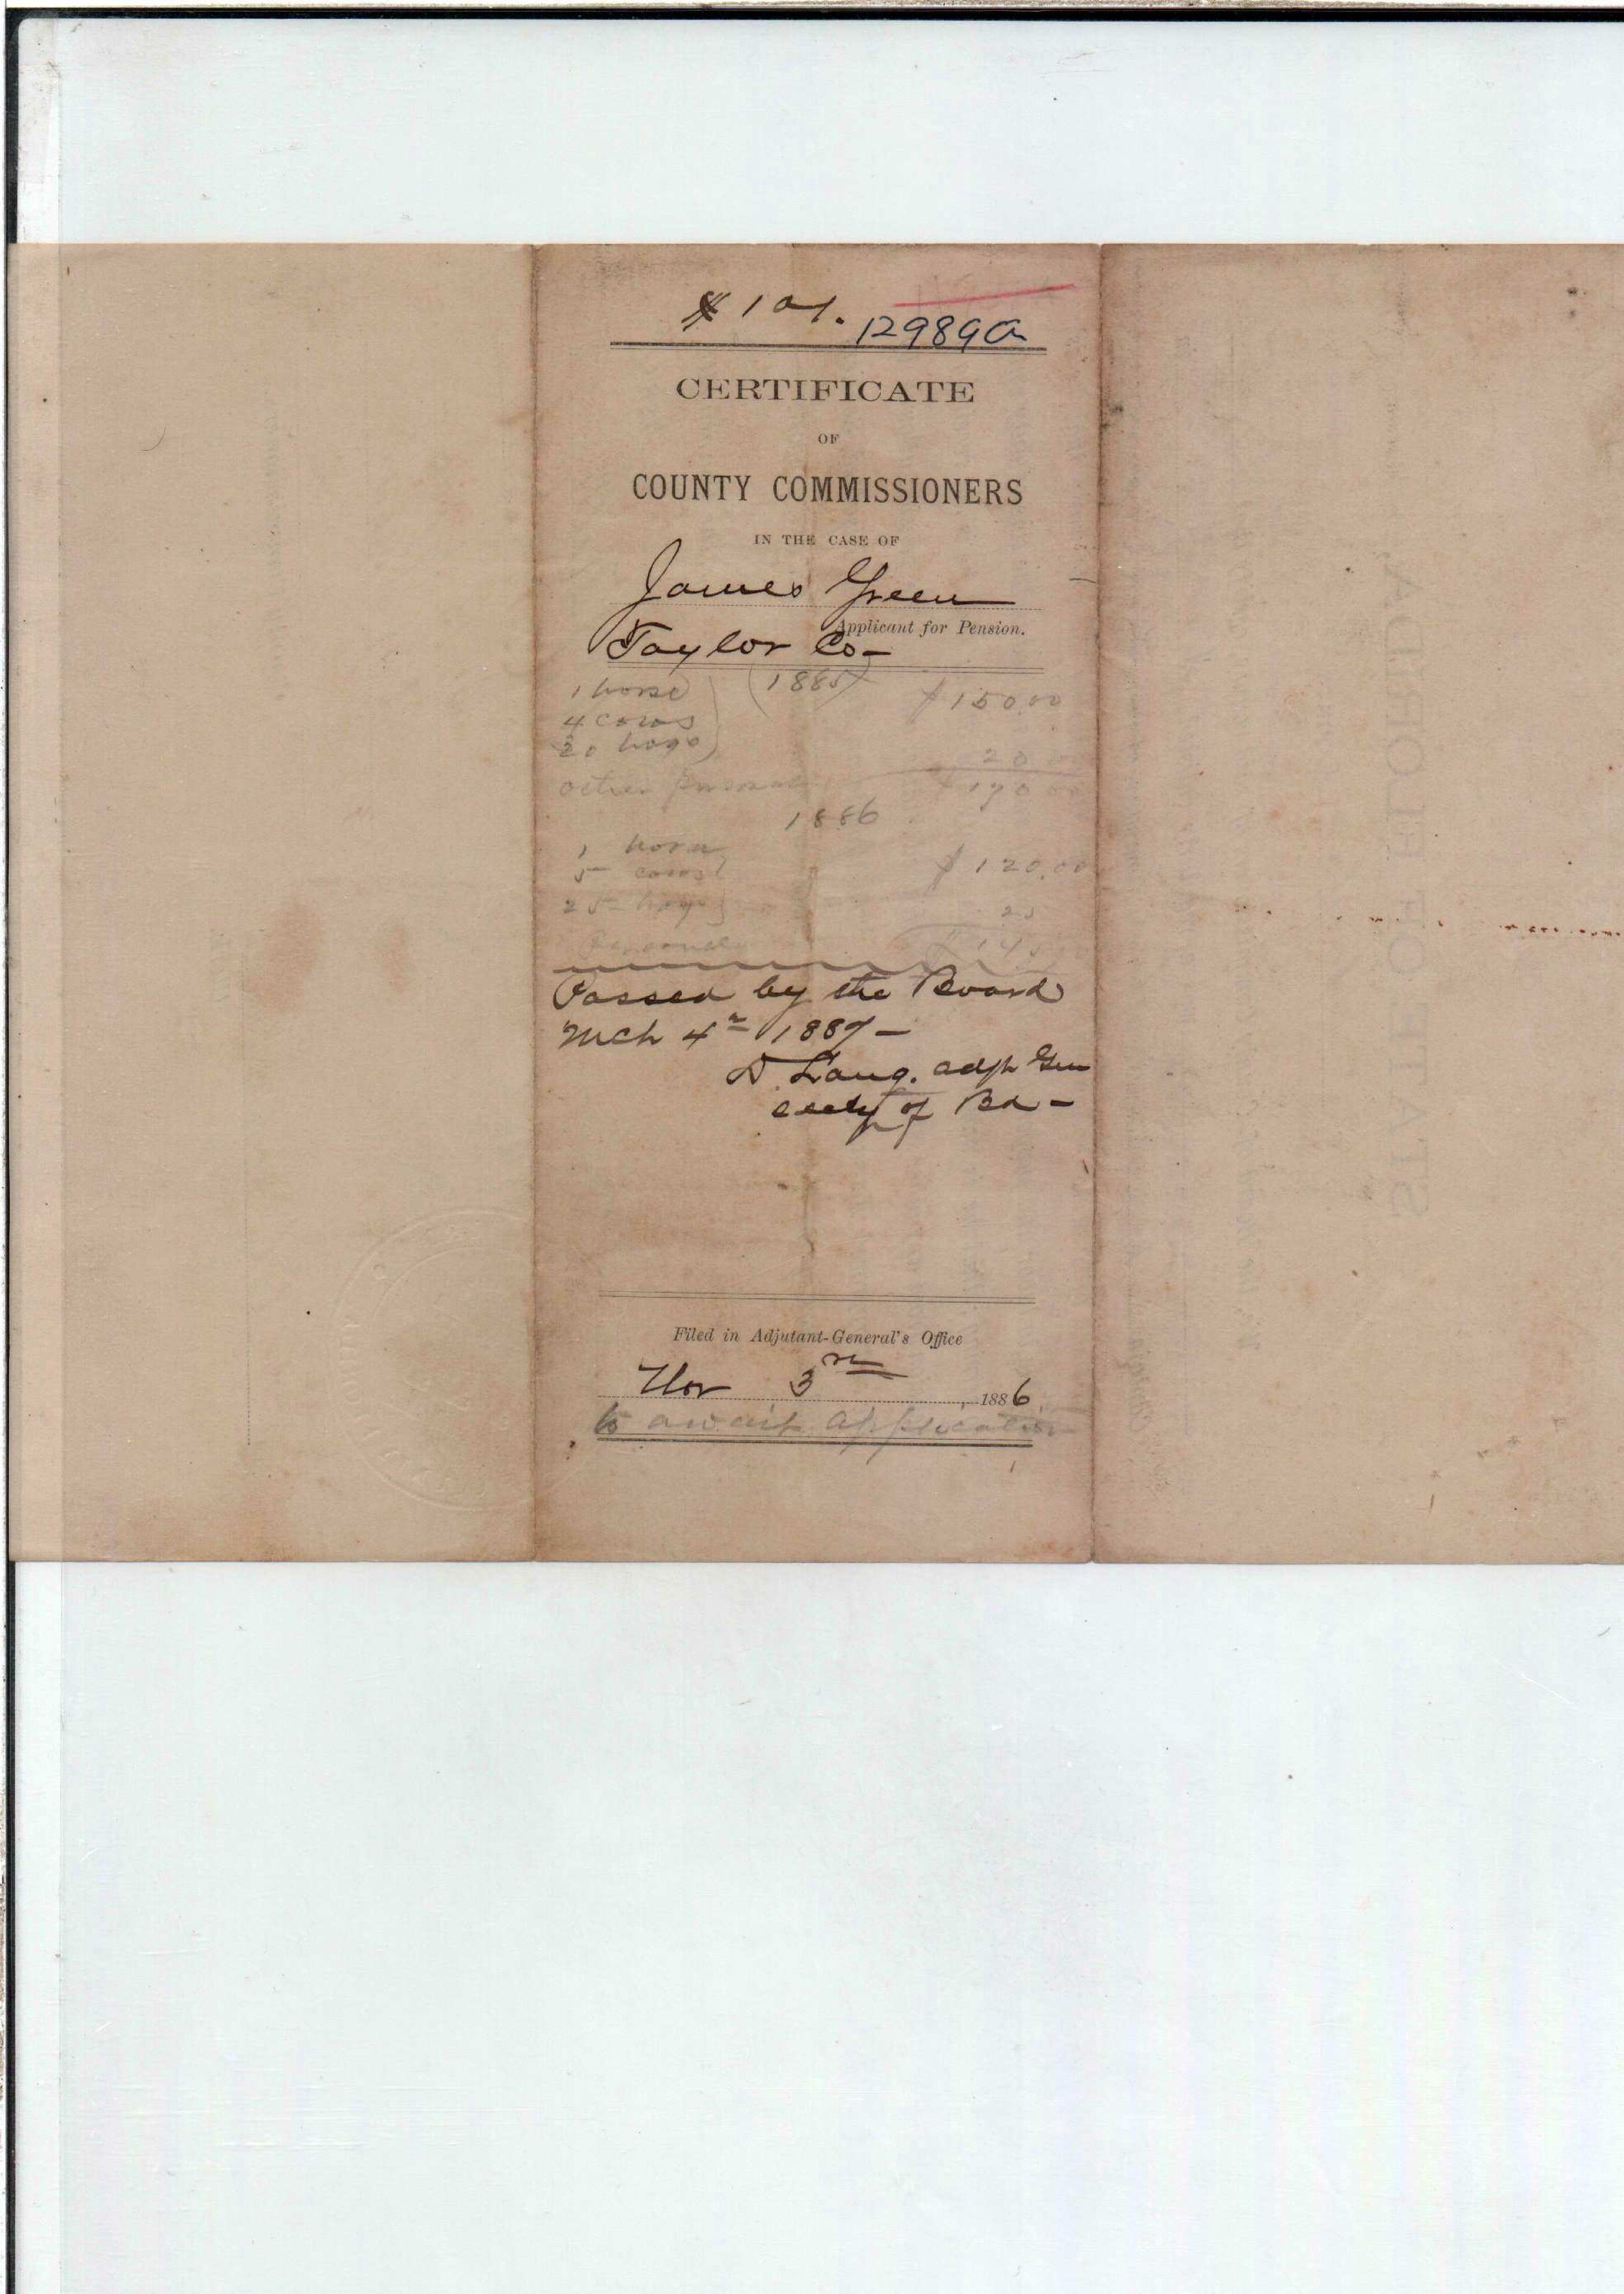 # 101.
12989A
CERTIFICATE
OF
COUNTY COMMISSIONERS
IN THE CASE OF
James Green
Applicant for Pension.
Taylor Co-
(1885)
1 horse
4 cows
20 hogs
$150.00
20
other personal
1886
1 horse
5 cows
25 hogs
$120.00
25
Personal
Passed by the Board
Mch 4th 1887-
D. Lang. Adjt Gen
of Bd-
Filed in Adjutant-General's Office
Nov 3rd, 1886.
to await application
STATE OF FLORIDA